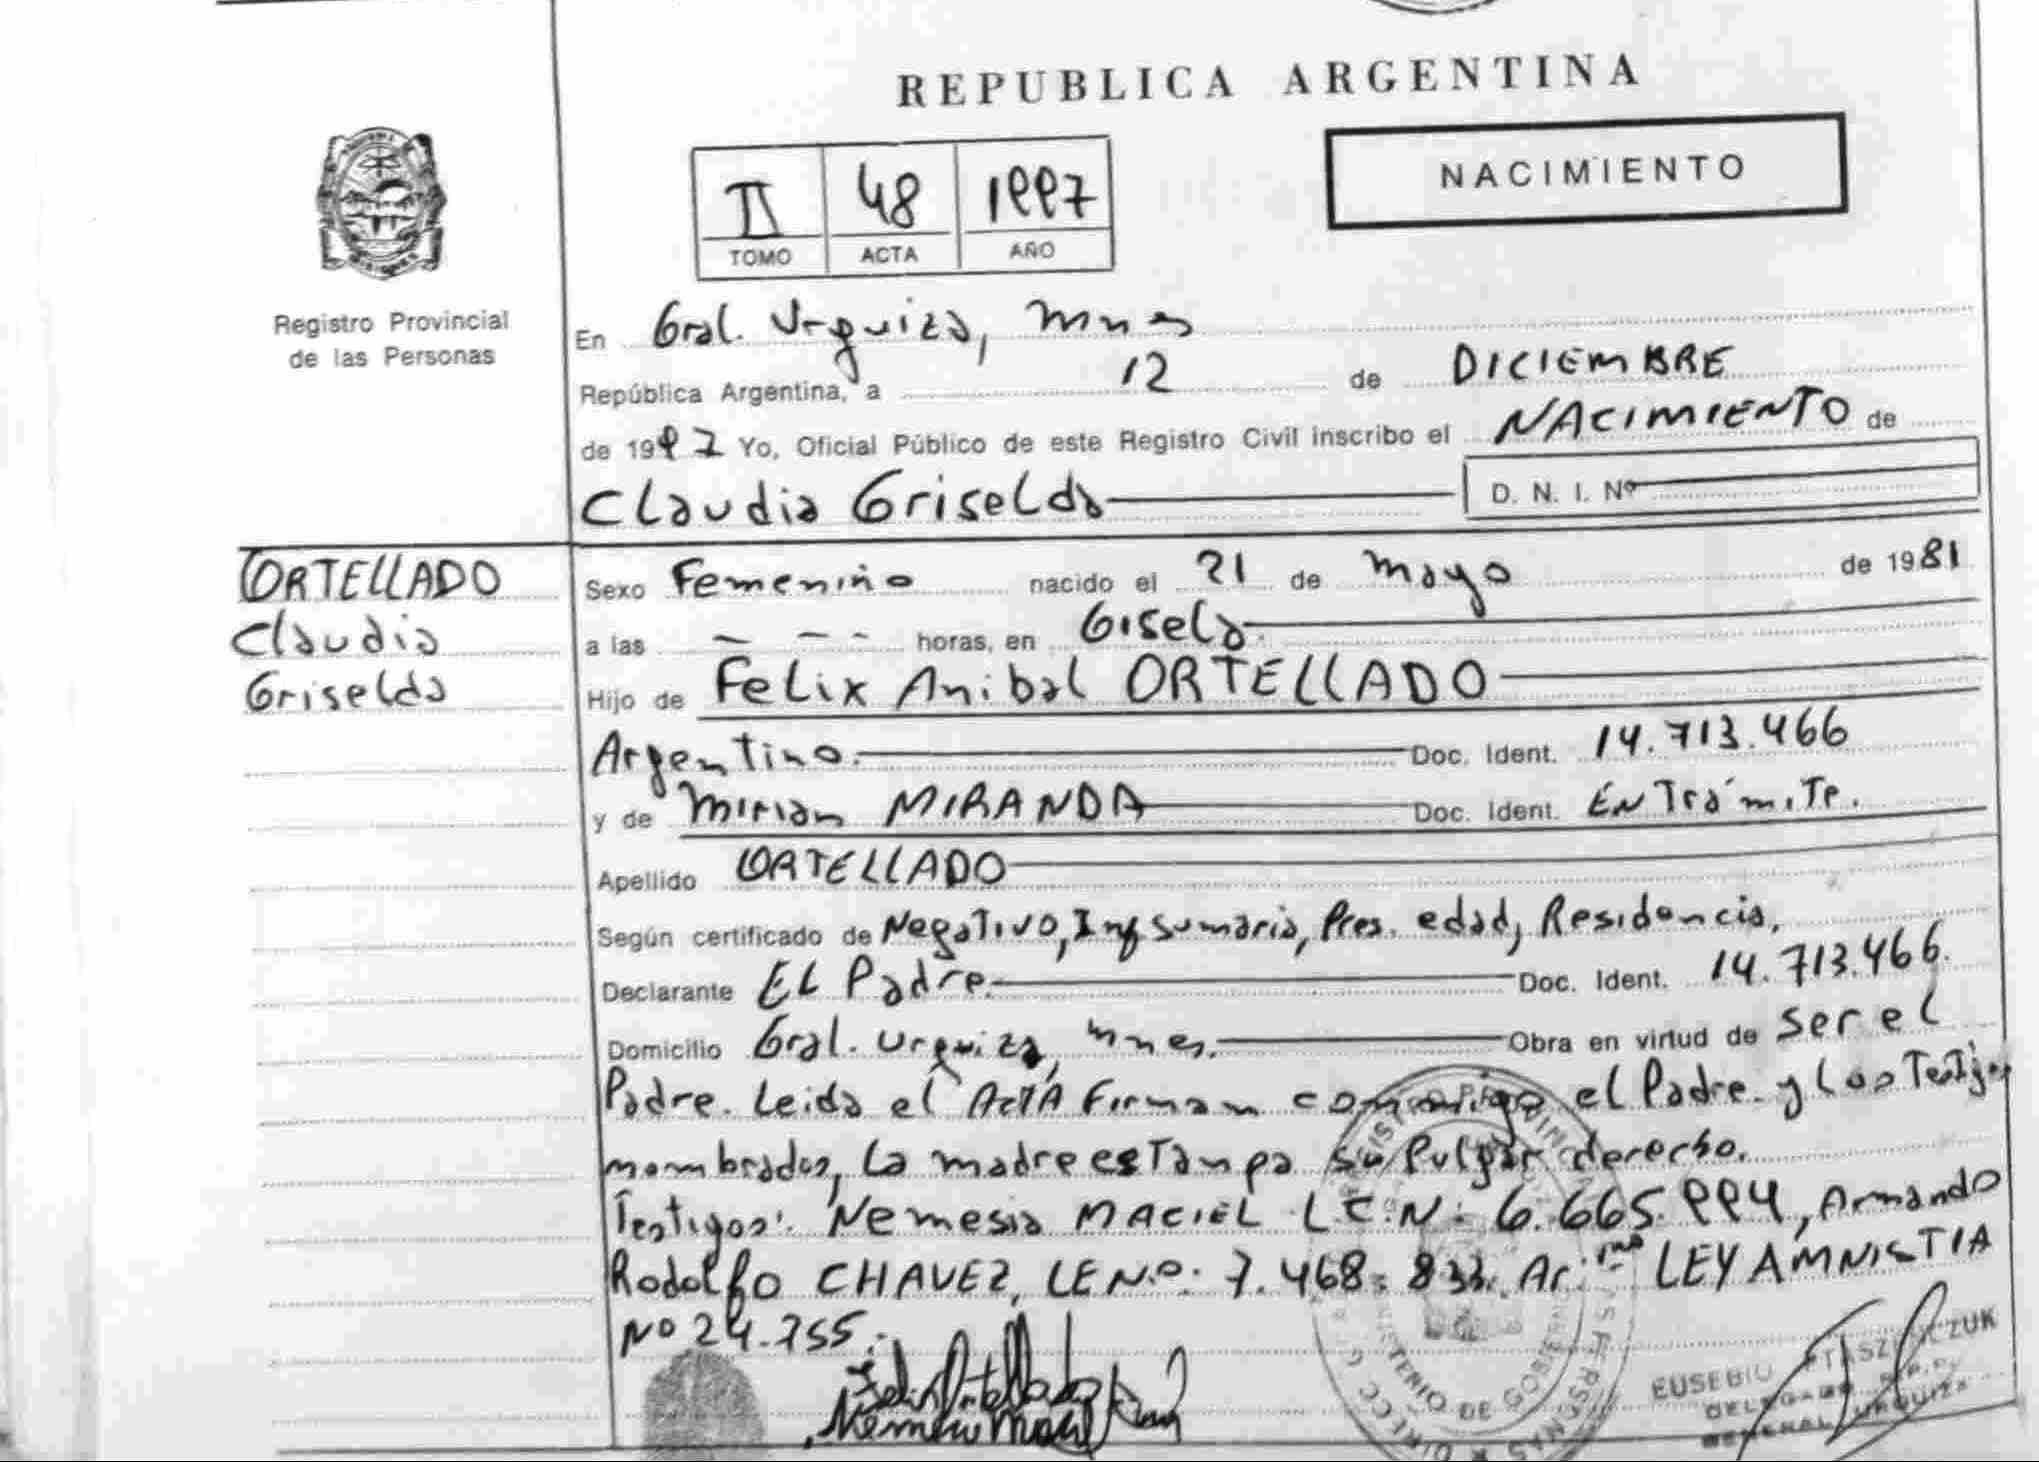 REPUBLICA ARGENTINA
NACIMIENTO
II 48 1997
TOMO ACTA AÑO
Registro Provincial
de las Personas
En Gral. Urquiza, Mnes
República Argentina, a 12 de DICIEMBRE
de 1997 Yo, Oficial Público de este Registro Civil inscribo el NACIMIENTO de
Claudia Griselda D. N. I. Nº
ORTELLADO
Claudia
Griselda
Sexo Femenino nacido el 21 de Mayo de 1981
a las horas, en Gisela
Hijo de Felix Anibal ORTELLADO
Argentino. Doc. Ident. 14.713.466
y de Mirian MIRANDA Doc. Ident. En Trámite.
Apellido ORTELLADO
Según certificado de Negativo, Inf sumaria, Pres. edad, Residencia,
Declarante EL Padre. Doc. Ident. 14.713.466.
Domicilio Gral. Urquiza, Mnes. Obra en virtud de ser el
Padre. Leida el ActA Firman conmigo el Padre y los Testigos
nombrados, La madre estampa su Pulgar derecho.
Testigos: Nemesia MACIEL L.C.N: 6.665.994, Armando
Rodolfo CHAVEZ, LE Nº: 7.468.833. LEY AMNISTIA
Nº 24.755.
EUSEBIO
DELEGADO R.P.P.
GENERAL URQUIZA